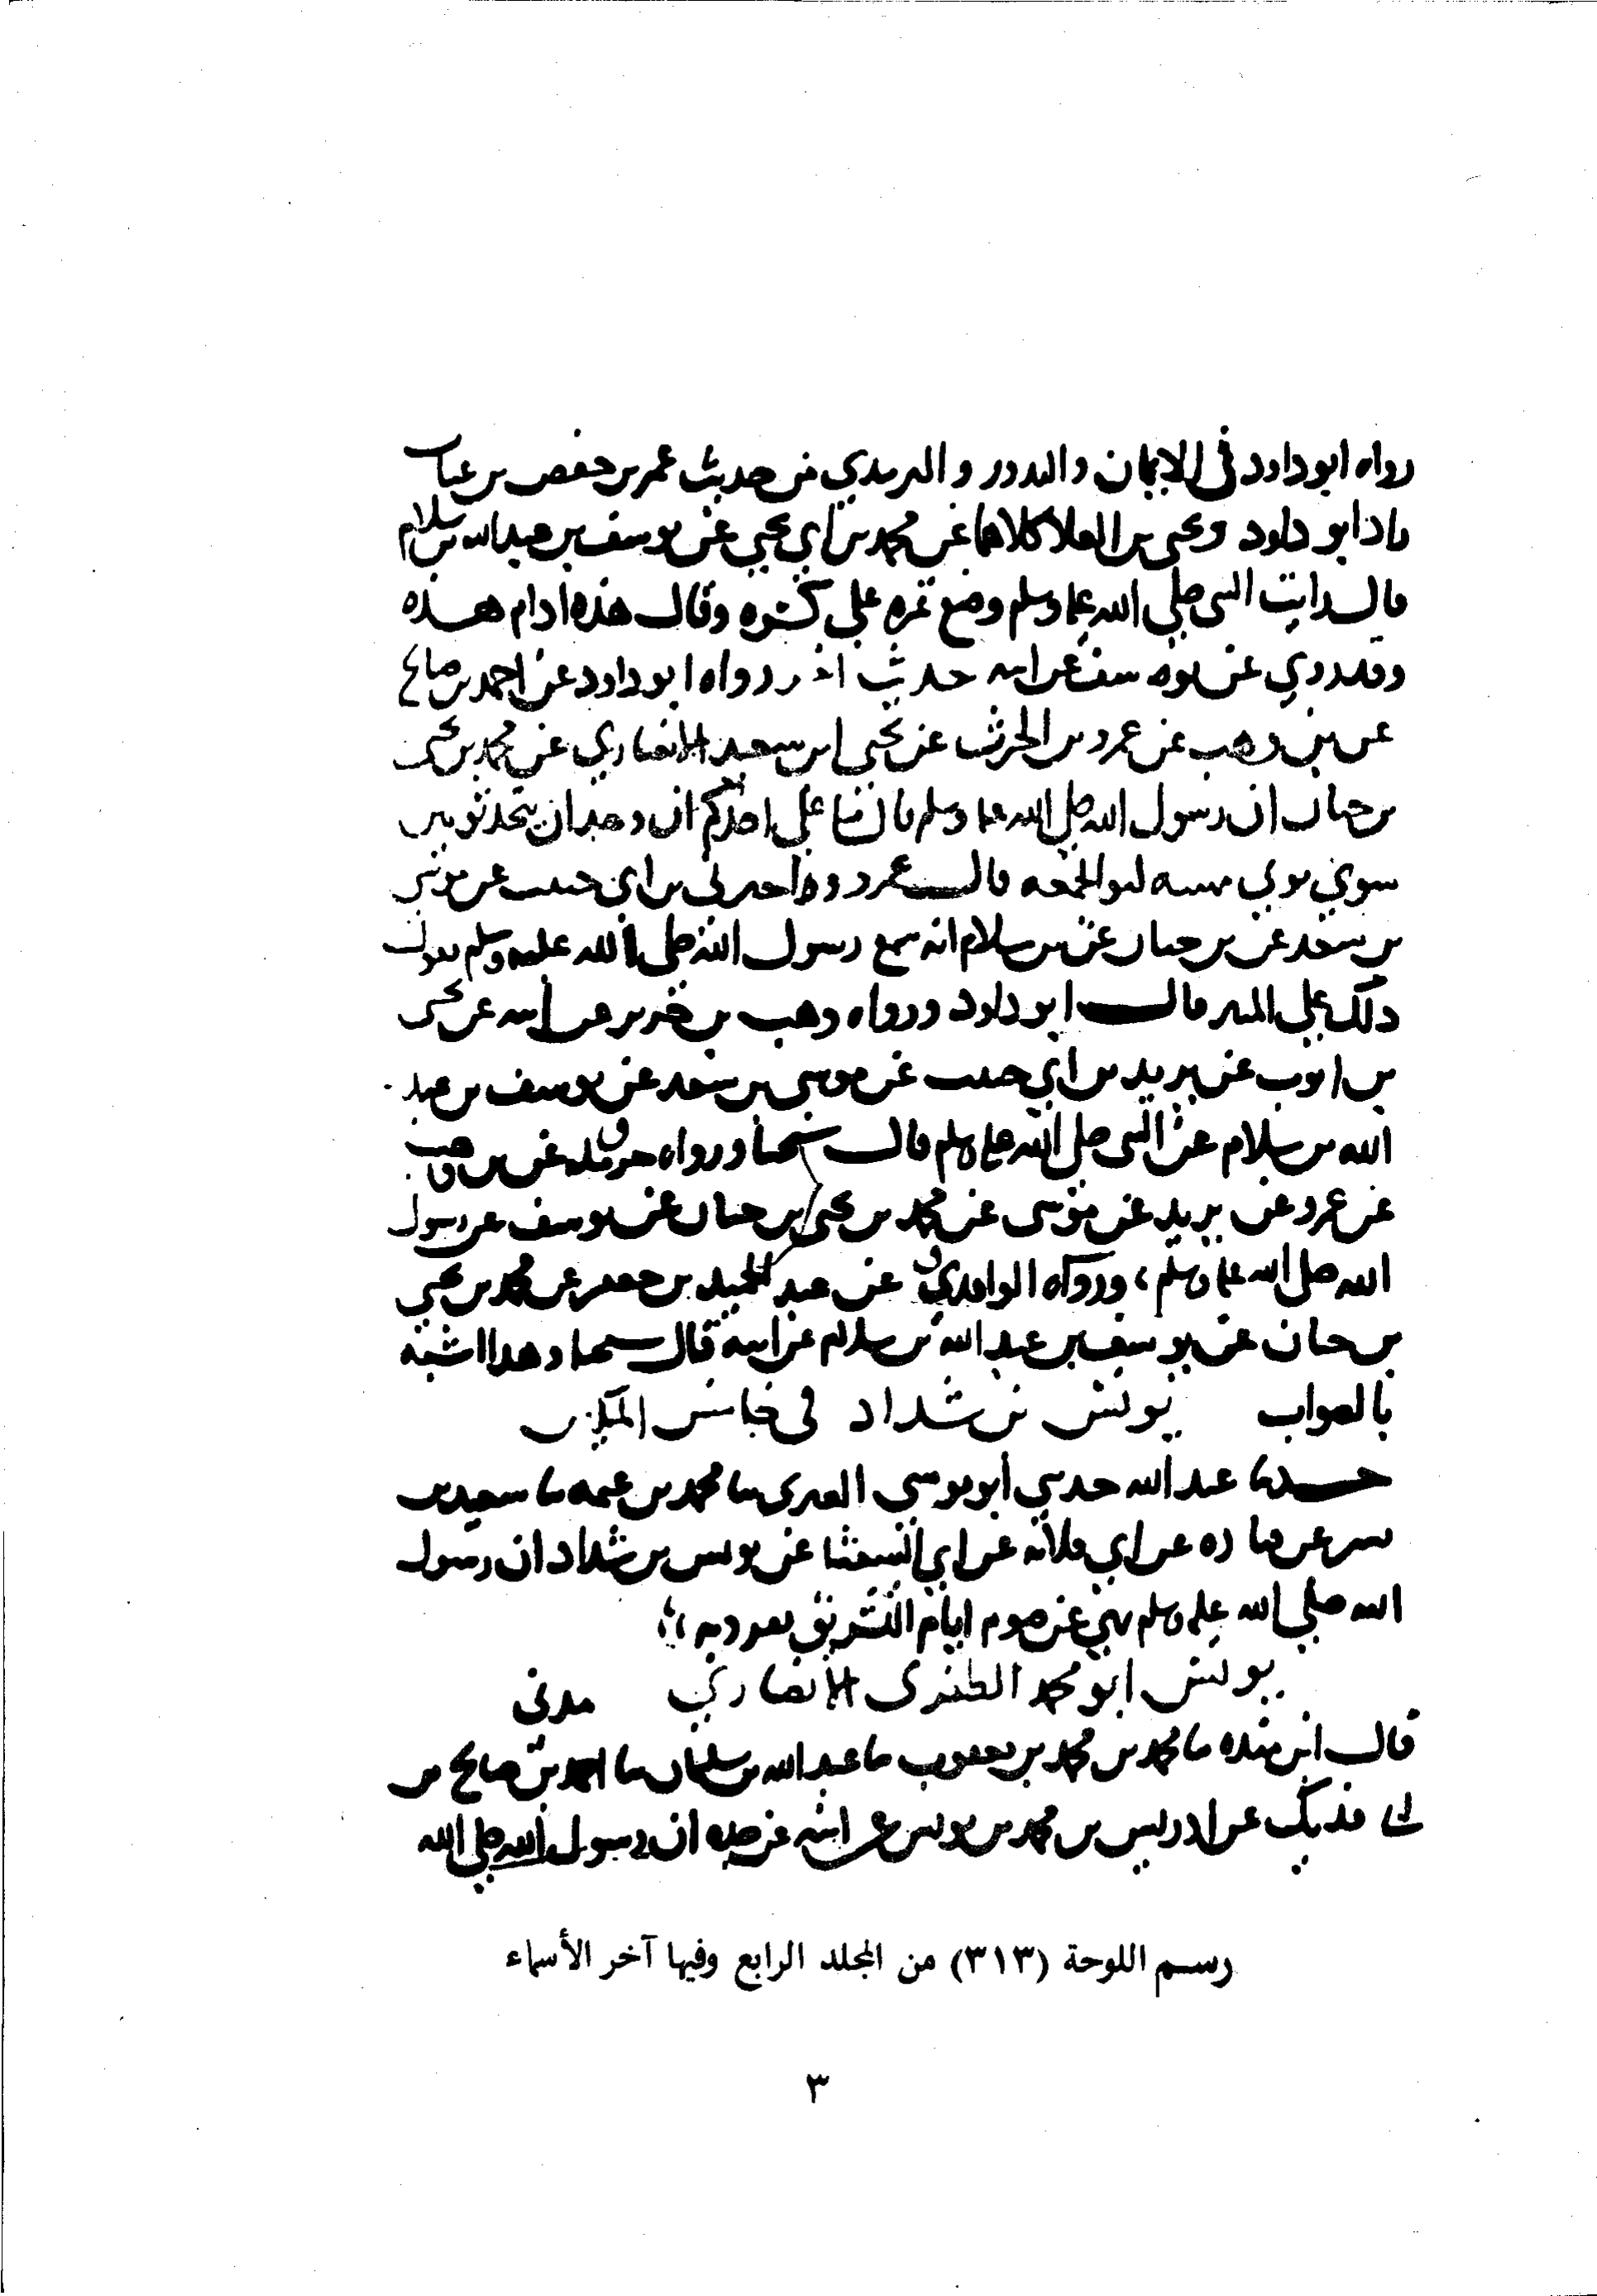 رواه ابو داود في الايمان والندور والترمدي من حديث عمر بن حفص بن غياث
زاد ابو داود ويحيى بن العلا كلاهما عن محمد بن ابي يحيي عن يوسف بن عبد الله بن سلام
قال رايت النبي صلي الله عليه وسلم وضع تمره علي كسره وقال هذه ادام هذه
وقد روي عن يوسف عن ابيه حديث اخر رواه ابو داود عن احمد بن صالح
عن بن وهب عن عمرو بن الحرث عن يحيي ابن سعيد الانصاري عن محمد بن يحيى
بن حبان ان رسول الله صلي الله عليه وسلم قال ما علي احدكم ان وجد ان يتخذ ثوبين
سوي ثوبي مهنته ليوم الجمعه قال عمرو واخبرني بن ابي حبيب عن موسى
بن سعد عن بن حبان عن بن سلام انه سمع رسول الله صلي الله عليه وسلم يقول
ذلك علي المنبر قال ابو داود ورواه وهب بن جرير عن ابيه عن يحيى
بن ايوب عن يزيد بن ابي حبيب عن موسى بن سعد عن يوسف بن عبد
الله بن سلام عن النبي صلي الله عليه وسلم قال شيخنا ورواه حرمله عن بن وهب
عن عمرو عن يزيد عن موسى عن محمد بن يحيى بن حبان عن يوسف عن رسول
الله صلي الله عليه وسلم، ورواه الواقدي عن عبد الحميد بن جعفر عن محمد بن يحيي
بن حبان عن يوسف بن عبد الله بن سلام عن ابيه قال شيخنا وهذا اشبه
بالصواب يونس بن شداد في خامس المكيين
حدثنا عبد الله حدثني ابو موسي العنزي ثنا محمد بن عثمه ثنا سعيد بن
بشير عن قتاده عن ابي قلابه عن ابي الشعثا عن يونس بن شداد ان رسول
الله صلي الله عليه وسلم نهي عن صوم ايام التشريق تفرد به
يونس ابو محمد الظفري الانصاري مدني
قال ابن منده ثنا محمد بن محمد بن يعقوب ثنا عبد الله بن سليمان ثنا احمد بن صالح بن
ابي فديك عن ادريس بن محمد بن يونس عن ابيه عن جده ان رسول الله صلي الله
رسم اللوحة (٣١٣) من المجلد الرابع وفيها آخر الأسماء
٣